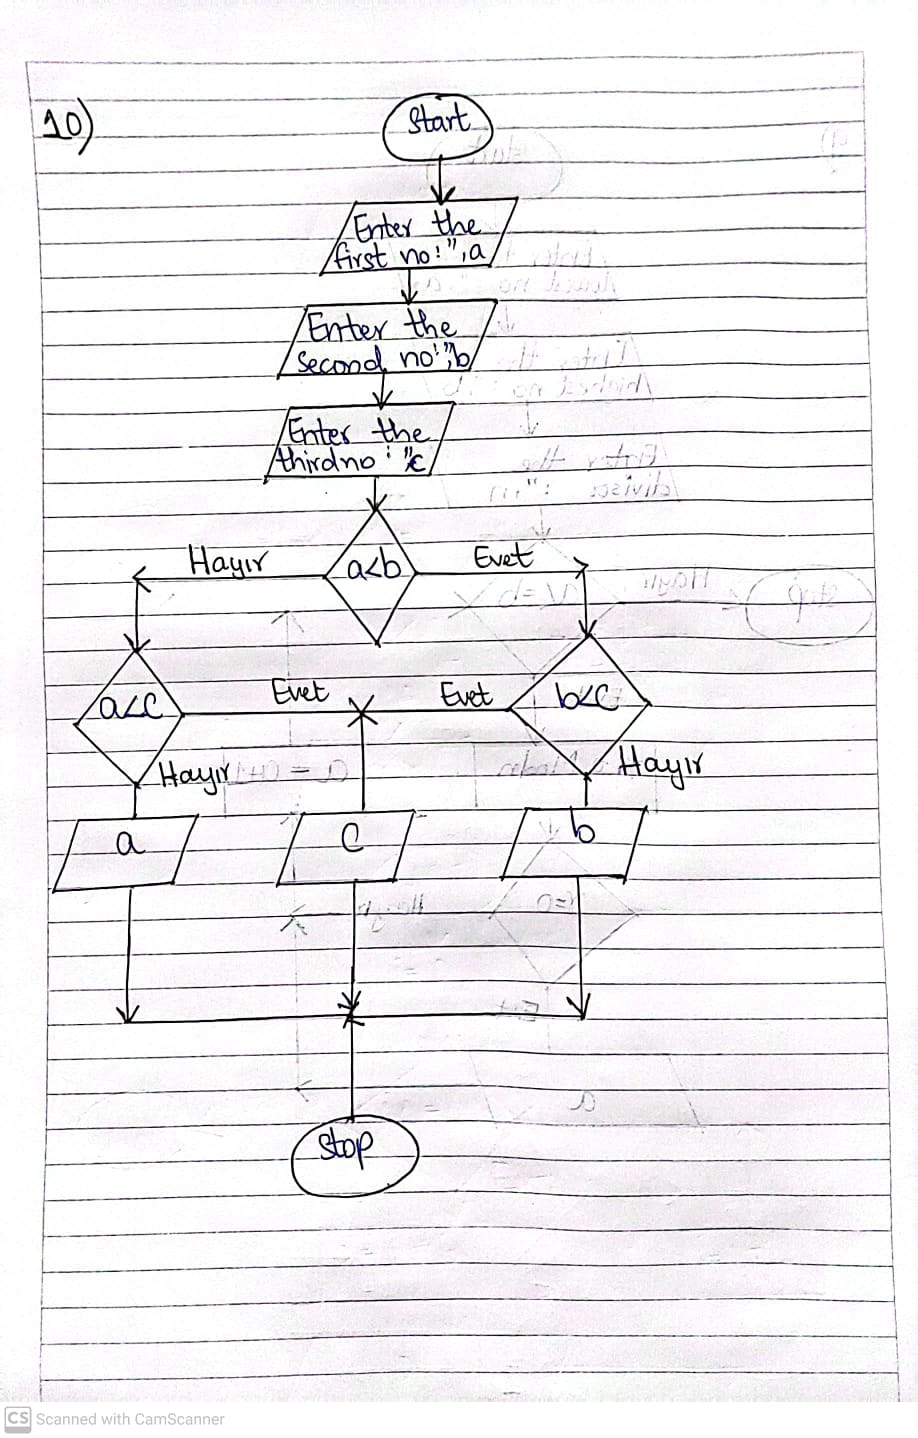 10)
Start
Enter the
first no:",a
Enter the
second no:",b
Enter the
third no : "c
a<b
Hayır
Evet
a<c
Evet
Evet
b<c
Hayır
Hayır
a
c
b
Stop
CS Scanned with CamScanner